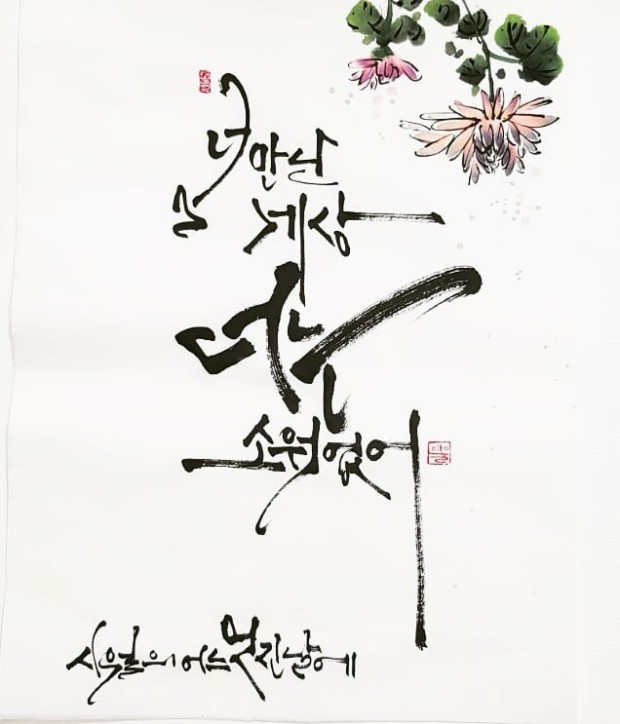 너 만난
세상
더는
소원 없어
시월의 어느 멋진 날에